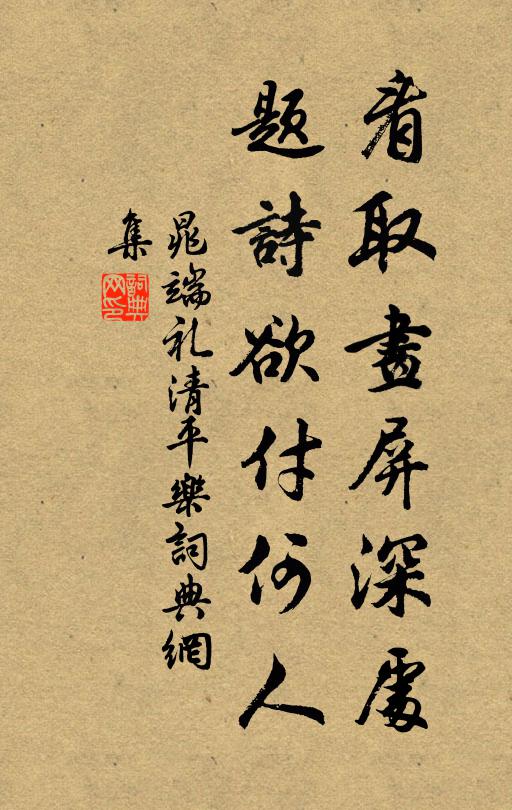 看取畫屏深處
題詩欲付何人
晁端礼清平樂詞典網
集
詞典網印